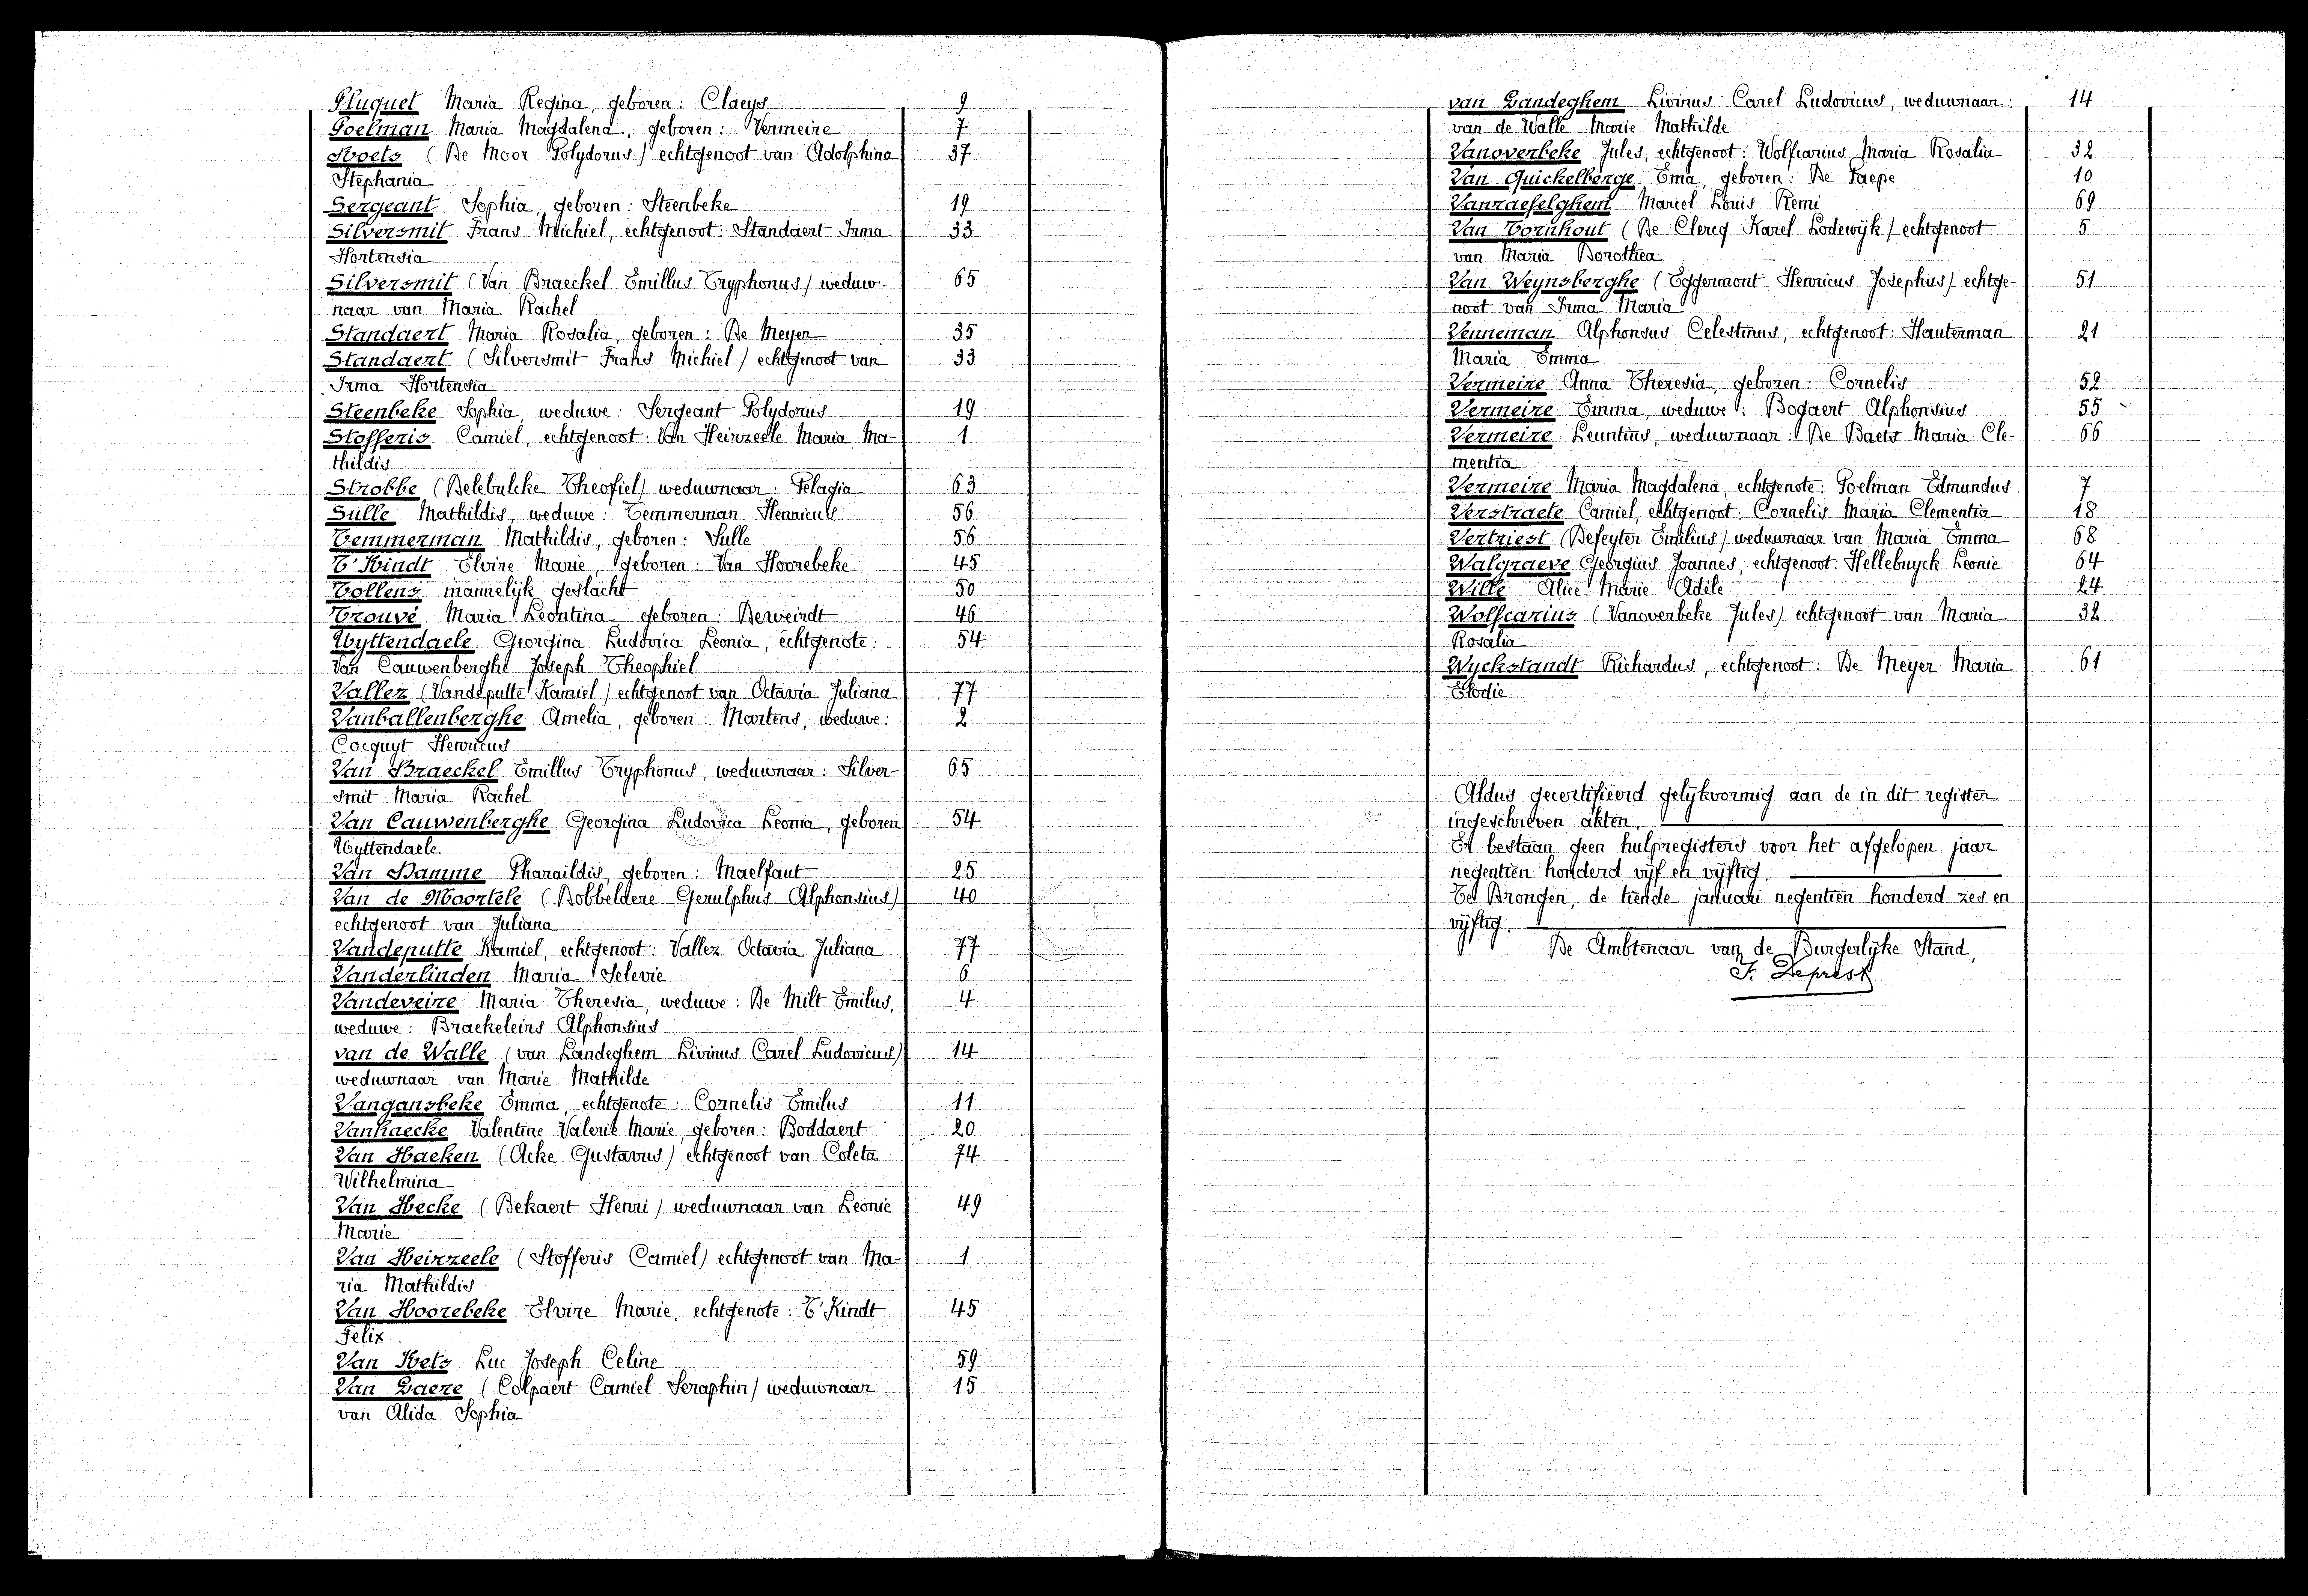 Pluquet Maria Regina, geboren: Claeys 9
Poelman Maria Magdalena, geboren: Vermeire 7
(De Moor Polydorus) echtgenoot van Adolphina 37
Stephania
Sergeant Sophia, geboren: Steenbeke 19
Silversmit Frans Michiel, echtgenoot: Standaert Irma 33
Hortensia
Silversmit (Van Braeckel Emillus Tryphonus) weduw- 65
naar van Maria Rachel
Standaert Maria Rosalia, geboren: De Meyer 35
Standaert (Silversmit Frans Michiel) echtgenoot van 33
Irma Hortensia
Steenbeke Sophia, weduwe: Sergeant Polydorus 19
Stofferis Camiel, echtgenoot: Van Heirzeele Maria Ma- 1
thildis
Strobbe (Delebulcke Theofiel) weduwnaar: Pelagia 63
Sulle Mathildis, weduwe: Temmerman Henricus 56
Temmerman Mathildis, geboren: Sulle 56
T'Kindt Elvire Marie, geboren: Van Hoorebeke 45
Tollens mannelijk geslacht 50
Trouvé Maria Leontina, geboren: Derweirdt 46
Uyttendaele Georgina Ludovica Leonia, echtgenote: 54
Van Cauwenberghe Joseph Theophiel
Vallez (Vandeputte Kamiel) echtgenoot van Octavia Juliana 77
Vanballenberghe Amelia, geboren: Martens, weduwe: 2
Cocquyt Henricus
Van Braeckel Emillus Tryphonus, weduwnaar: Silver- 65
smit Maria Rachel
Van Cauwenberghe Georgina Ludovica Leonia, geboren 54
Uyttendaele
Van Damme Pharaildis, geboren: Maelfaut 25
Van de Moortele (Dobbeldere Gerulphus Alphonsius) 40
echtgenoot van Juliana
Vandeputte Kamiel, echtgenoot: Vallez Octavia Juliana 77
Vanderlinden Maria Selevie 6
Vandeveire Maria Theresia, weduwe: De Milt Emilus, 4
weduwe: Braekeleirs Alphonsius
van de Walle (van Landeghem Livinus Carel Ludovicus) 14
weduwnaar van Marie Mathilde
Vangansbeke Emma, echtgenote: Cornelis Emilus 11
Vanhaecke Valentine Valerie Marie, geboren: Boddaert 20
Van Haeken (Acke Gustavus) echtgenoot van Coleta 74
Wilhelmina
Van Hecke (Bekaert Henri) weduwnaar van Leonie 49
Marie
Van Heirzeele (Stofferis Camiel) echtgenoot van Ma- 1
ria Mathildis
Van Hoorebeke Elvire Marie, echtgenote: T'Kindt 45
Felix
Van Kets Luc Joseph Celine 59
Van Laere (Colpaert Camiel Seraphin) weduwnaar 15
van Alida Sophia
van Landeghem Livinus Carel Ludovicus, weduwnaar: 14
van de Walle Marie Mathilde
Vanoverbeke Jules, echtgenoot: Wolfcarius Maria Rosalia 32
Van Quickelberge Ema, geboren: De Paepe 10
Vanraefelghem Marcel Louis Remi 69
Van Tornhout (De Clercq Karel Lodewijk) echtgenoot 5
van Maria Dorothea
Van Weynsberghe (Eggermont Henricus Josephus) echtge- 51
noot van Irma Maria
Venneman Alphonsus Celestinus, echtgenoot: Hauterman 21
Maria Emma
Vermeire Anna Theresia, geboren: Cornelis 52
Vermeire Emma, weduwe: Bogaert Alphonsius 55
Vermeire Leuntius, weduwnaar: De Baets Maria Cle- 66
mentia
Vermeire Maria Magdalena, echtgenote: Poelman Edmundus 7
Verstraete Camiel, echtgenoot: Cornelis Maria Clementia 18
Vertriest (Defeyter Emilius) weduwnaar van Maria Emma 68
Walgraeve Georgius Joannes, echtgenoot: Hellebuyck Leonie 64
Wille Alice Marie Adèle 24
Wolfcarius (Vanoverbeke Jules) echtgenoot van Maria 32
Rosalia
Wyckstandt Richardus, echtgenoot: De Meyer Maria 61
Elodie
Aldus gecertifiëerd gelijkvormig aan de in dit register
ingeschreven akten.
Er bestaan geen hulpregisters voor het afgelopen jaar
negentien honderd vijf en vijftig.
Te Drongen, de tiende januari negentien honderd zes en
vijftig.
De Ambtenaar van de Burgerlijke Stand,
F. Deprest